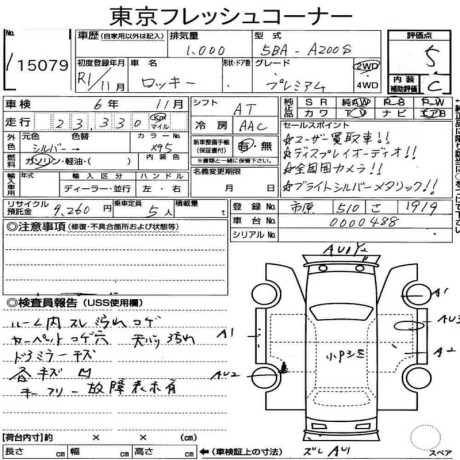 東京フレッシュコーナー
No.
15079
車歴 (自家用以外は記入) 排気量 型式 評価点
1.000 5BA-A200S 5
初度登録年月 車名 形状・ドア数 グレード 2WD 内装
R1/11月 ロッキー プレミアム 4WD 補助評価 C
車検 6年 11月 シフト AT 純正品 S R 純AW P・S P・W
走行 23,330 km マイル 冷房 AAC カワ TV ナビ エアB
外色 元色 色替 カラーNo. 新車整備手帳(保証書付) 有・無 セールスポイント
シルバー→ X95 ☆ユーザー買取車!!
燃料 ガソリン・軽油・( ) 内装色 名義変更期限 ☆ディスプレイオーディオ!!
輸入車用 輸入区分 ハンドル 月 日 ☆全周囲カメラ!!
ディーラー・並行 左・右 ☆ブライトシルバーメタリック!!
リサイクル預託金 9,260円 乗車定員 5人 積載量 t 登録No. 市原 510 さ 1919
◎注意事項 (修復・不具合箇所および状態等) 車台No. 0000488
シリアルNo.
AU1Y2
◎検査員報告 (USS使用欄)
ルーム内 スレ 汚れ コゲ
カーペット コゲ穴 天バリ汚れ
ドアミラーキズ
各キズ凹
キーフリー故障表示有
A1
AU2
A1
AU3
A2
小Pシミ
スレ AU1
スペア
【荷台内寸】 × ×
長さ cm 幅 cm 高さ cm ←(車検証上の寸法)